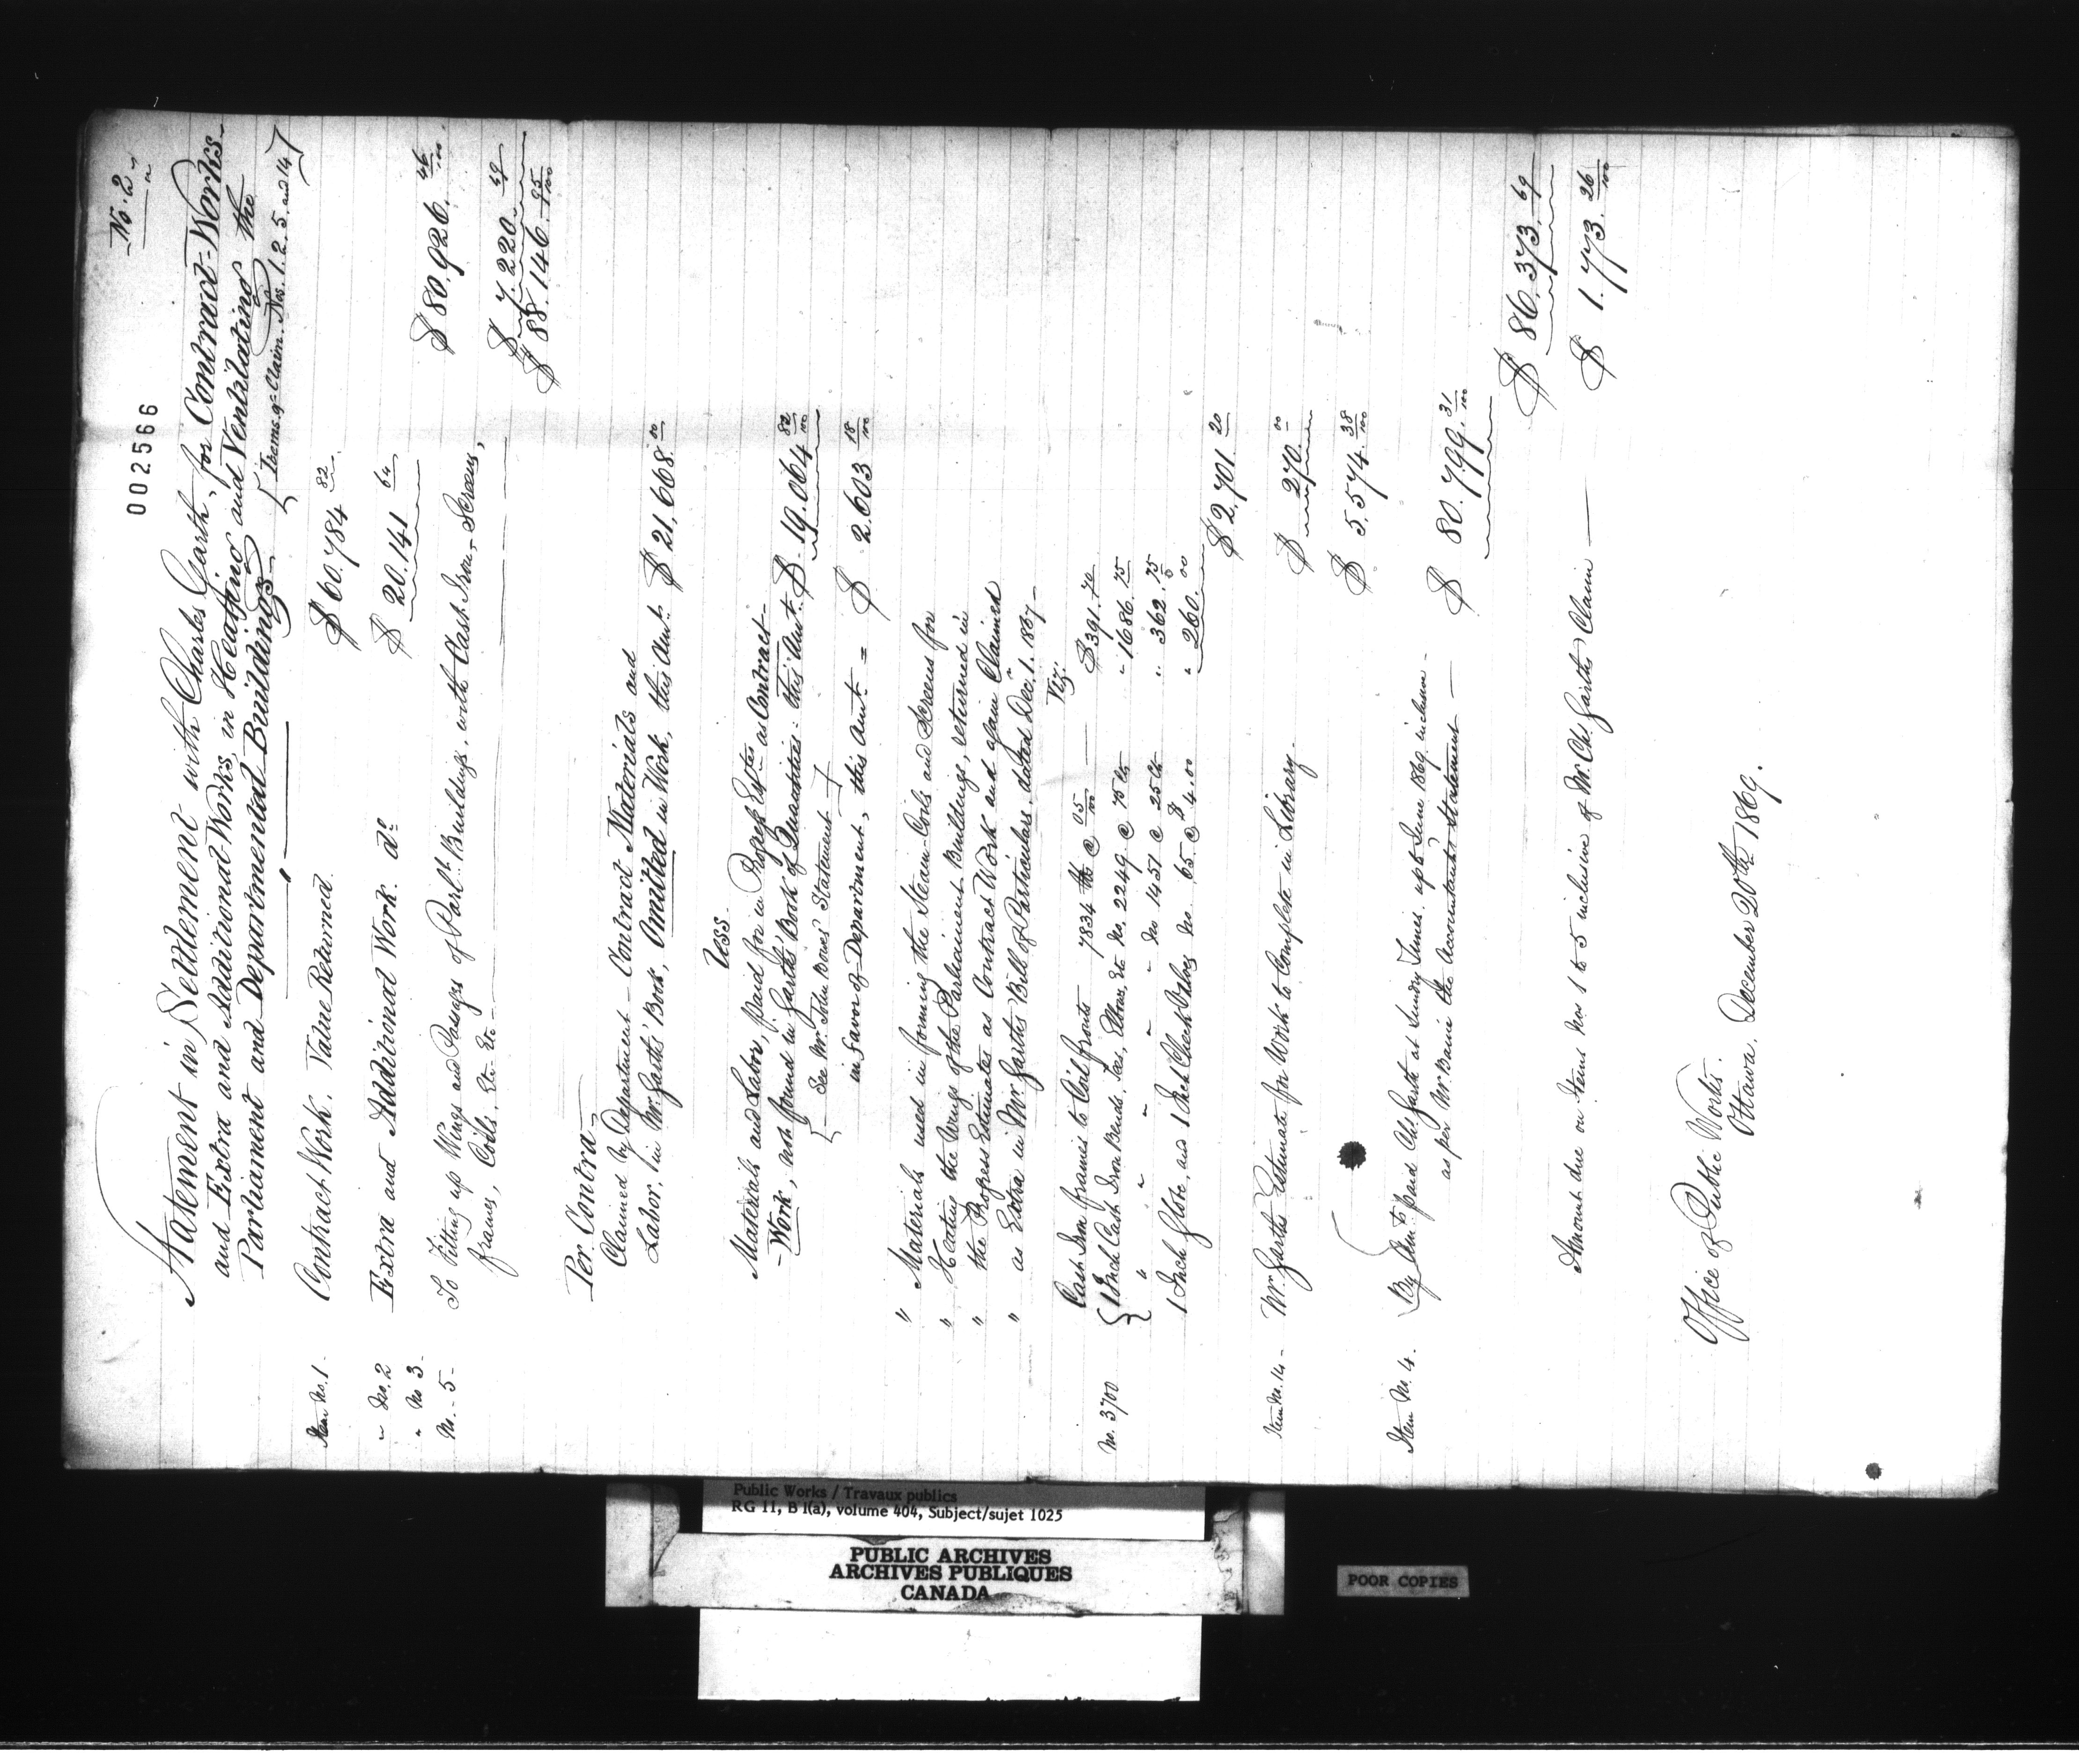 No. 2
002566
Statement in Settlement with Charles Garth, for Contract-Works
and Extra and Additional Works, in Heating and Ventilating the
Parliament and Departmental Buildings
{Items of Claim. Nos. 1. 2. 5. and 14}
Item No. 1 - Contract Work. Value Returned $ 60.784 82
" No. 2 Extra and Additional Work. do $ 20.141 64
" No 3 - $ 80,926. 46/100
No. - 5 - To Fitting up Wings and Passages of Parlt. Buildings, with Cash Iron, Screens,
frames, Coils, Etc. Etc - $ 7.220. 49
$ 88.146. 95/100
Per Contra -
Claimed by Department - Contract Materials and
Labor, in Mr. Garth's Book, Omitted in Work, this Amt. $ 21,668. 00
Less
Materials and Labor, paid for in Progess Ests as Contract
- Work, not found in Garth's Book of Quantities: this Amt. $ 19.064 82/100
{ See Mr. John Bowes' Statement }
in favor of Department, this amt = $ 2.603 18/100
" Materials used in forming the Steam-Coils and Screens for
" Heating the Wings of the Parliament Buildings, returned in
" the Progress Estimates as Contract Work and again Claimed
" as Extra in Mr. Garth's Bill of Particulars, dated Dec. 1. 1867 -
Viz:
Cash Iron frames to Coil fronts 7834 lbs @ 05/100 $ 391. 70
No. 3700 { 1 Inch Cash Iron Bends, Tees, Elbows, Etc No. 2249. @ 75 Cts " 1686. 75
" " " " " No 1451 @ 25 Cts " 362. 75
1 Inch Globe, and 1 Inch Check Valves No. 65. @ $ 4.00 " 260. 00
$ 2,701. 20
Item No. 14 - Mr. Garth's Estimate for Work to Complete in Library - $ 270. 00
$ 5.574. 38/100
Item No. 4. By Amt. paid Chs. Garth at Sundry Times, up to June 1869 inclusive -
as per Mr. Baine the Accountant's Statement - $ 80.799. 31/100
$ 86,373. 69
Amount due on Items Nos 1 to 5 inclusive of Mr. Chs. Garth's Claim - $ 1.773. 26/100
Office of Public Works.
Ottawa. December 20th 1869.
Public Works / Travaux publics
RG 11, B 1(a), volume 404, Subject/sujet 1025
PUBLIC ARCHIVES
ARCHIVES PUBLIQUES
CANADA
POOR COPIES